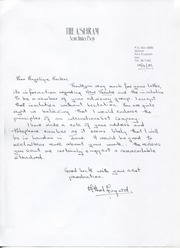 THE ASHRAM
Dear Angelique Rockas,
Thankyou very much for your letter,
its information regarding New Theatre and the invitation
to be a member of your advisory group. I accept
that invitation without hesitation. You are quite
right in believing that I would endorse the
principles of an internationalist company.
I have made a note of your address and
telephone number as it seems likely that I will
be in London in June. It would be good to
talk more about your work. The reviews
you sent me certainly suggest a remarkable
standard.
Good luck with your next
production.
Athol Fugard